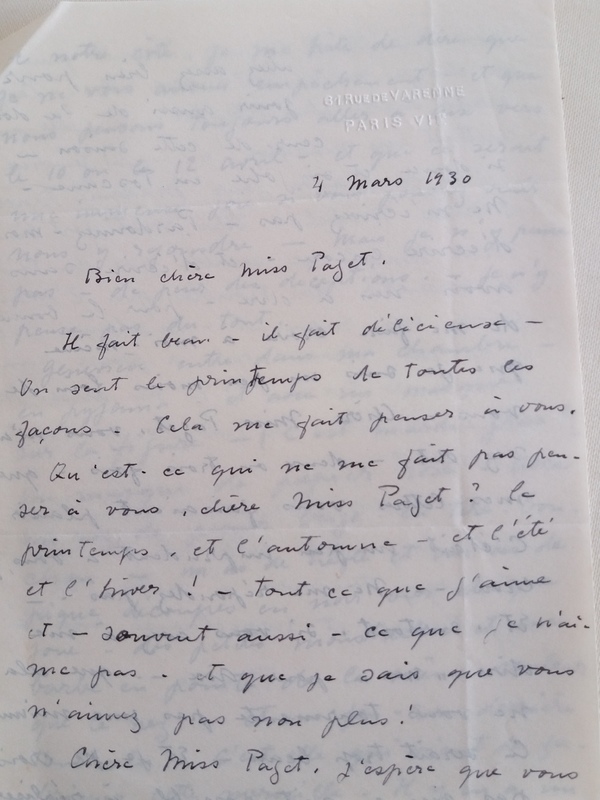 61 RUE DE VARENNE
PARIS VII
4 Mars 1930
Bien chère Miss Paget.
Il fait beau - il fait délicieuse -
On sent le printemps de toutes les
façons - Cela me fait penser à vous.
Qu'est-ce qui ne me fait pas pen-
ser à vous, chère Miss Paget ? le
printemps. et l'automne - et l'été
et l'hiver ! - tout ce que j'aime
et - souvent aussi - ce que je n'ai-
me pas - et que je sais que vous
n'aimez pas non plus !
Chère Miss Paget. J'espère que vous